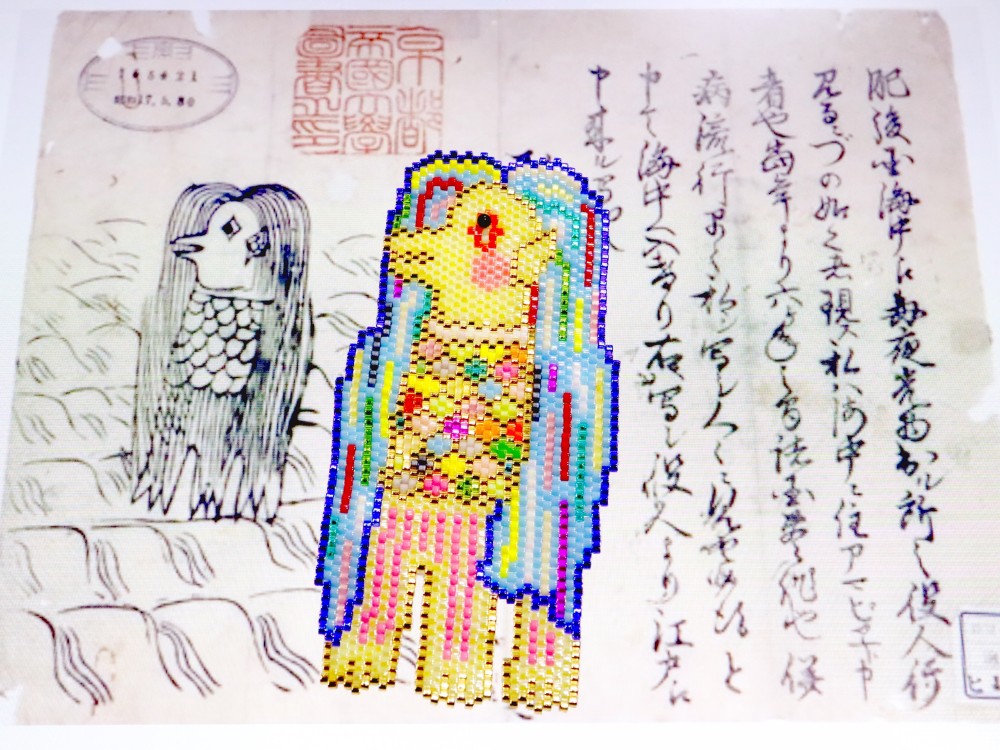 京都
帝國大學
圖書之印
肥後国海中え毎夜光物出ル所之役人行
見るニづの如く者現ス私ハ海中ニ住アマビヱト申
者也当年より六ヶ年之間諸国豊作也併
病流行早々私シ写シ人々ニ見セ候得と
申て海中へ入けり右写シ役人より江戸え
申来ル写也